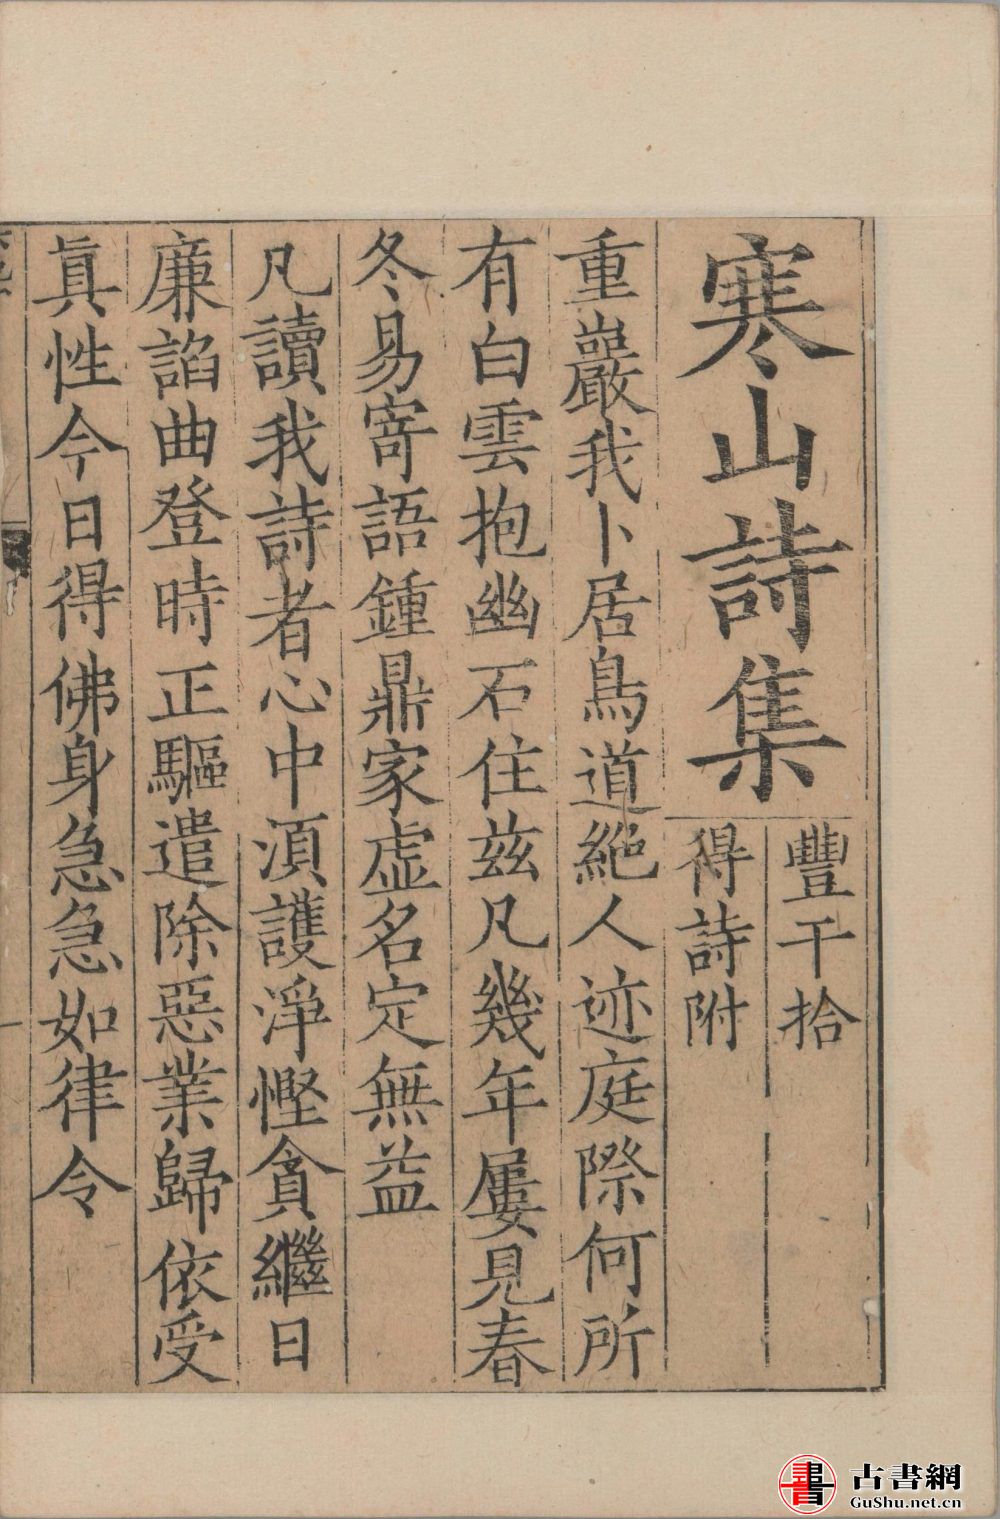 寒山詩集
豐干拾
得詩附
重巖我卜居鳥道絶人迹庭際何所
有白雲抱幽石住茲凡幾年屢見春
冬易寄語鍾鼎家虛名定無益
凡讀我詩者心中湏護淨慳貪繼日
廉諂曲登時正驅遣除惡業歸依受
真性今日得佛身急急如律令
古書網
GuShu.net.cn